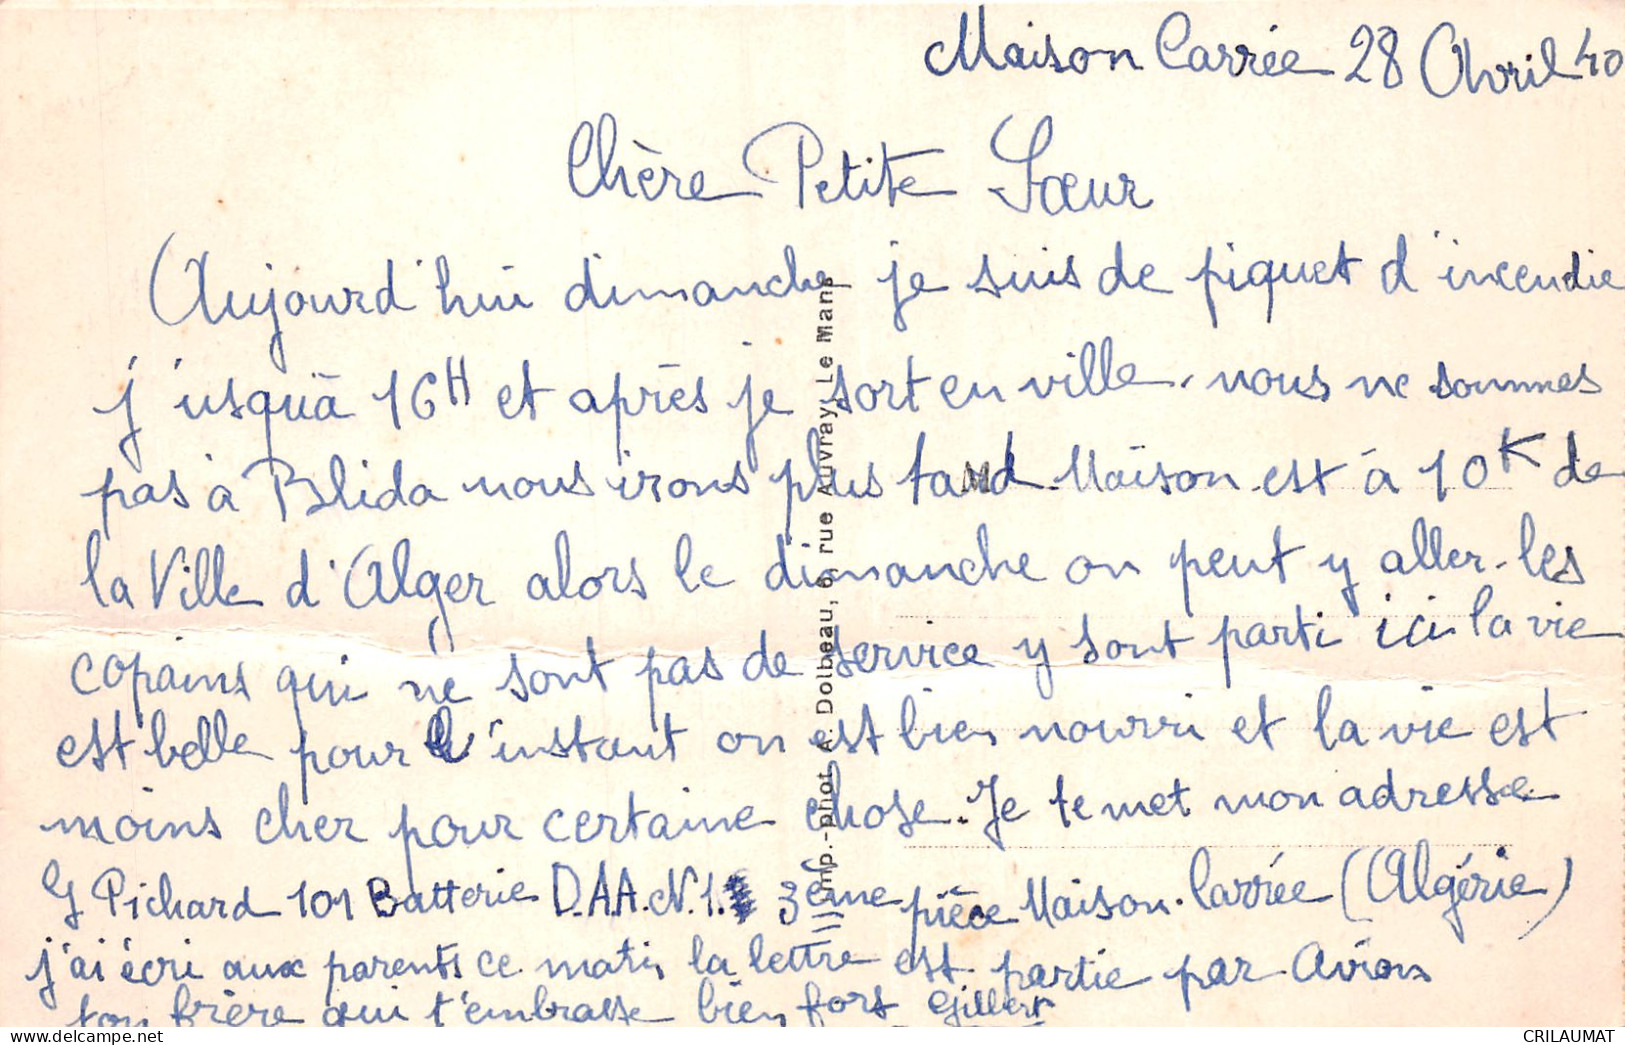 Maison Carrée 28 Avril 40
Chère Petite Sœur
Aujourd'hui dimanche je suis de piquet d'incendie
j'usqu'à 16H et après je sort en ville. nous ne sommes
pas à Blida nous irons plus tard. Maison est à 10K de
la Ville d'Alger alors le dimanche on peut y aller. les
copains qui ne sont pas de service y sont parti ici la vie
est belle pour l'instant on est bien nourri et la vie est
moins cher pour certaine chose. Je te met mon adresse
G Pichard 101 Batterie D.A.A. N.1. 3ème pièce Maison-Carrée (Algérie)
j'ai écri aux parents ce matin la lettre est partie par Avion
ton frère qui t'embrasse bien fort Gillert
Imp.-phot. A. Dolbeau, 6, rue Auvray, Le Mans
CRILAUMAT